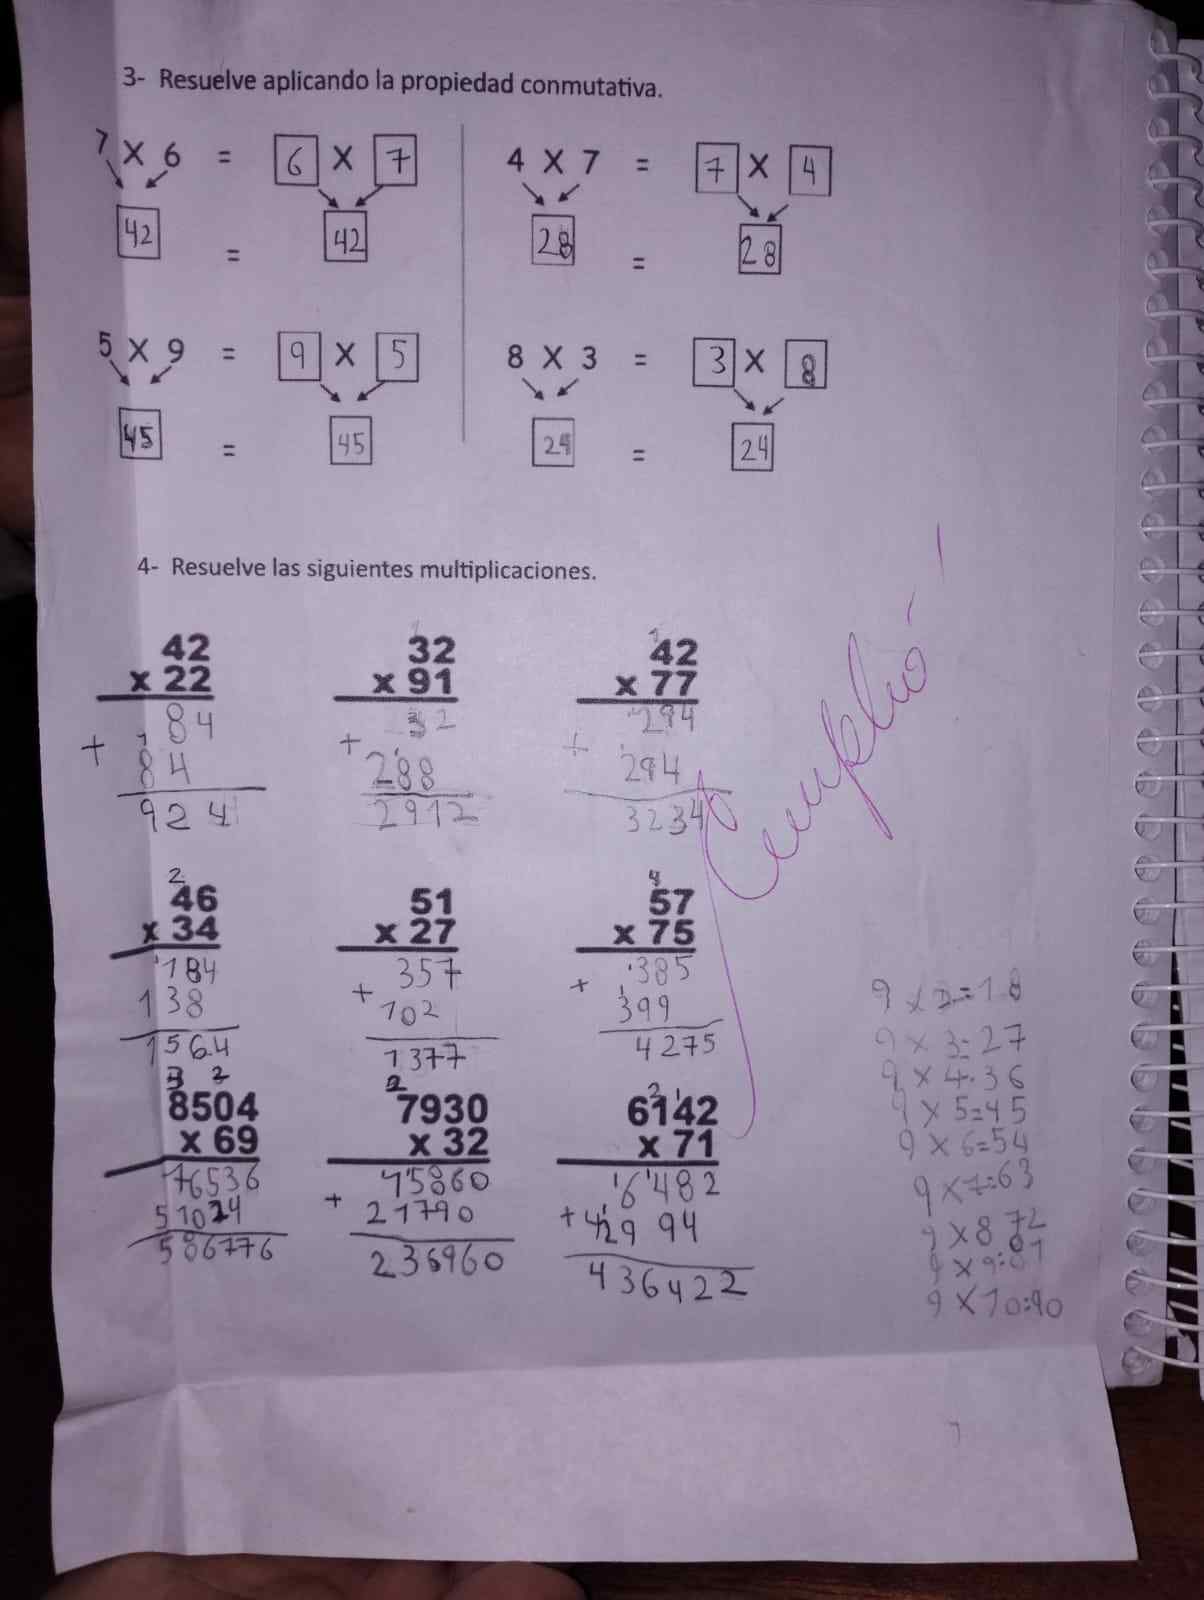 3- Resuelve aplicando la propiedad conmutativa.
7 X 6 = 6 X 7
42 = 42
4 X 7 = 7 X 4
28 = 28
5 X 9 = 9 X 5
45 = 45
8 X 3 = 3 X 8
24 = 24
4- Resuelve las siguientes multiplicaciones.
42
x 22
84
+ 84
924
32
x 91
32
+ 288
2912
1
42
x 77
294
+ 294
3234
Cumplió
2
46
x 34
184
138
1564
51
x 27
357
+ 102
1377
4
57
x 75
385
+ 399
4275
3 2
8504
x 69
76536
51024
586776
2
7930
x 32
15860
+ 21790
236960
6142
x 71
6482
+ 42994
436422
9 x 2=18
9 x 3=27
9 x 4.36
9 x 5=45
9 x 6=54
9 x 7=63
9 x 8 72
9 x 9:81
9 x 10:90